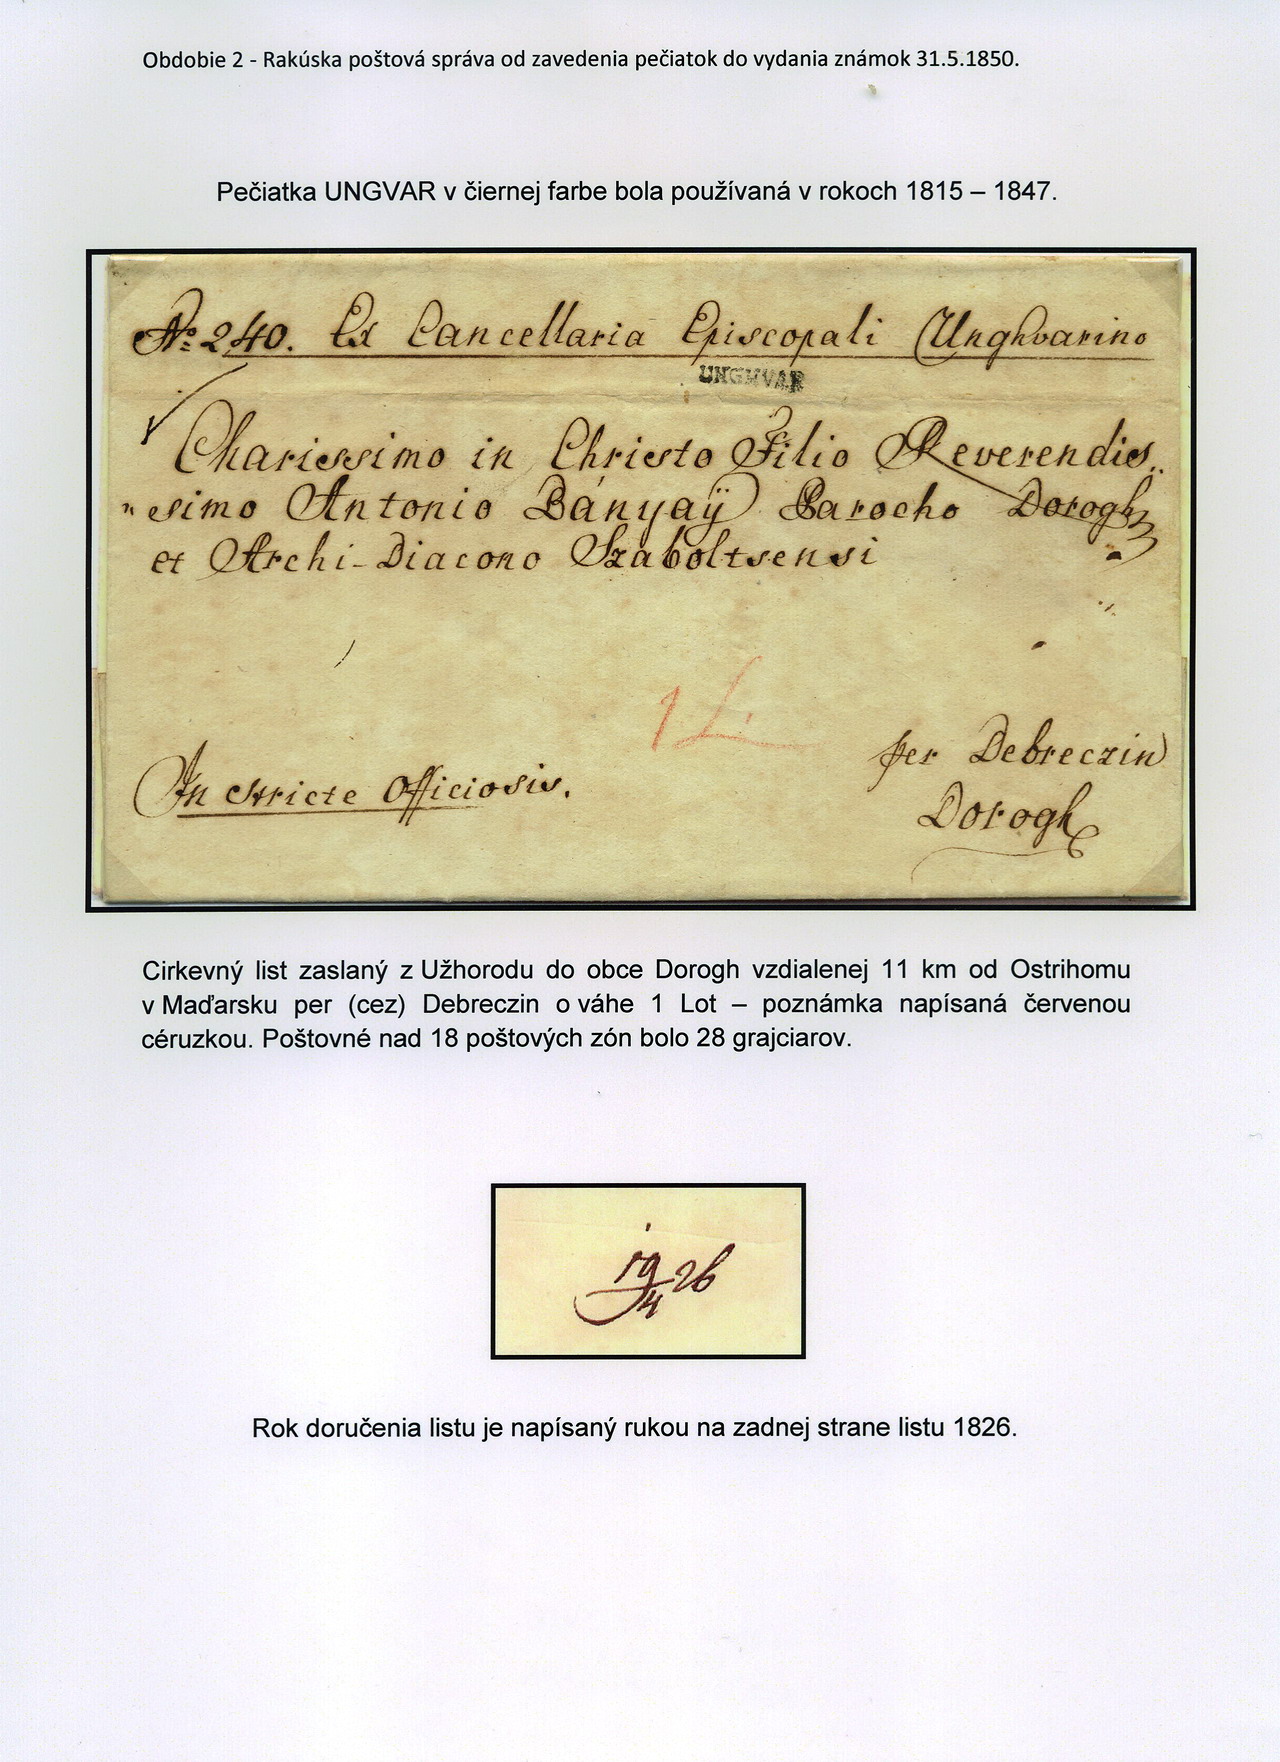 Obdobie 2 - Rakúska poštová správa od zavedenia pečiatok do vydania známok 31.5.1850.
Pečiatka UNGVAR v čiernej farbe bola používaná v rokoch 1815 – 1847.
No. 240. Ex Cancellaria Episcopali Unghvarino
UNGHVAR
Charissimo in Christo Filio Reverendis„
„simo Antonio Bányaÿ Parocho Dorogh
et Archi-Diacono Szaboltsensi
1 L
per Debreczin
In stricte Officiosis.
Dorogh
Cirkevný list zaslaný z Užhorodu do obce Dorogh vzdialenej 11 km od Ostrihomu
v Maďarsku per (cez) Debreczin o váhe 1 Lot – poznámka napísaná červenou
céruzkou. Poštovné nad 18 poštových zón bolo 28 grajciarov.
19/4 26
Rok doručenia listu je napísaný rukou na zadnej strane listu 1826.